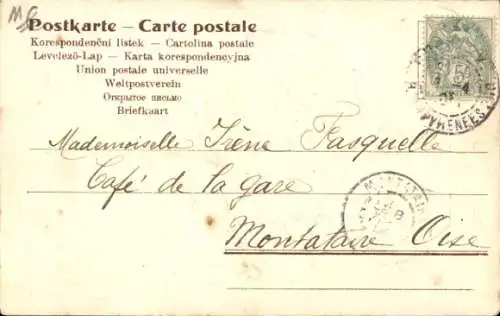 Postkarte – Carte postale
Korespondenční lístek – Cartolina postale
Levelező-Lap – Karta korespondencyjna
Union postale universelle
Weltpostverein
Открытое письмо
Briefkaart
5
PYRENEES
Mademoiselle Irène Fasquelle
Café de la gare
Montataire Oise